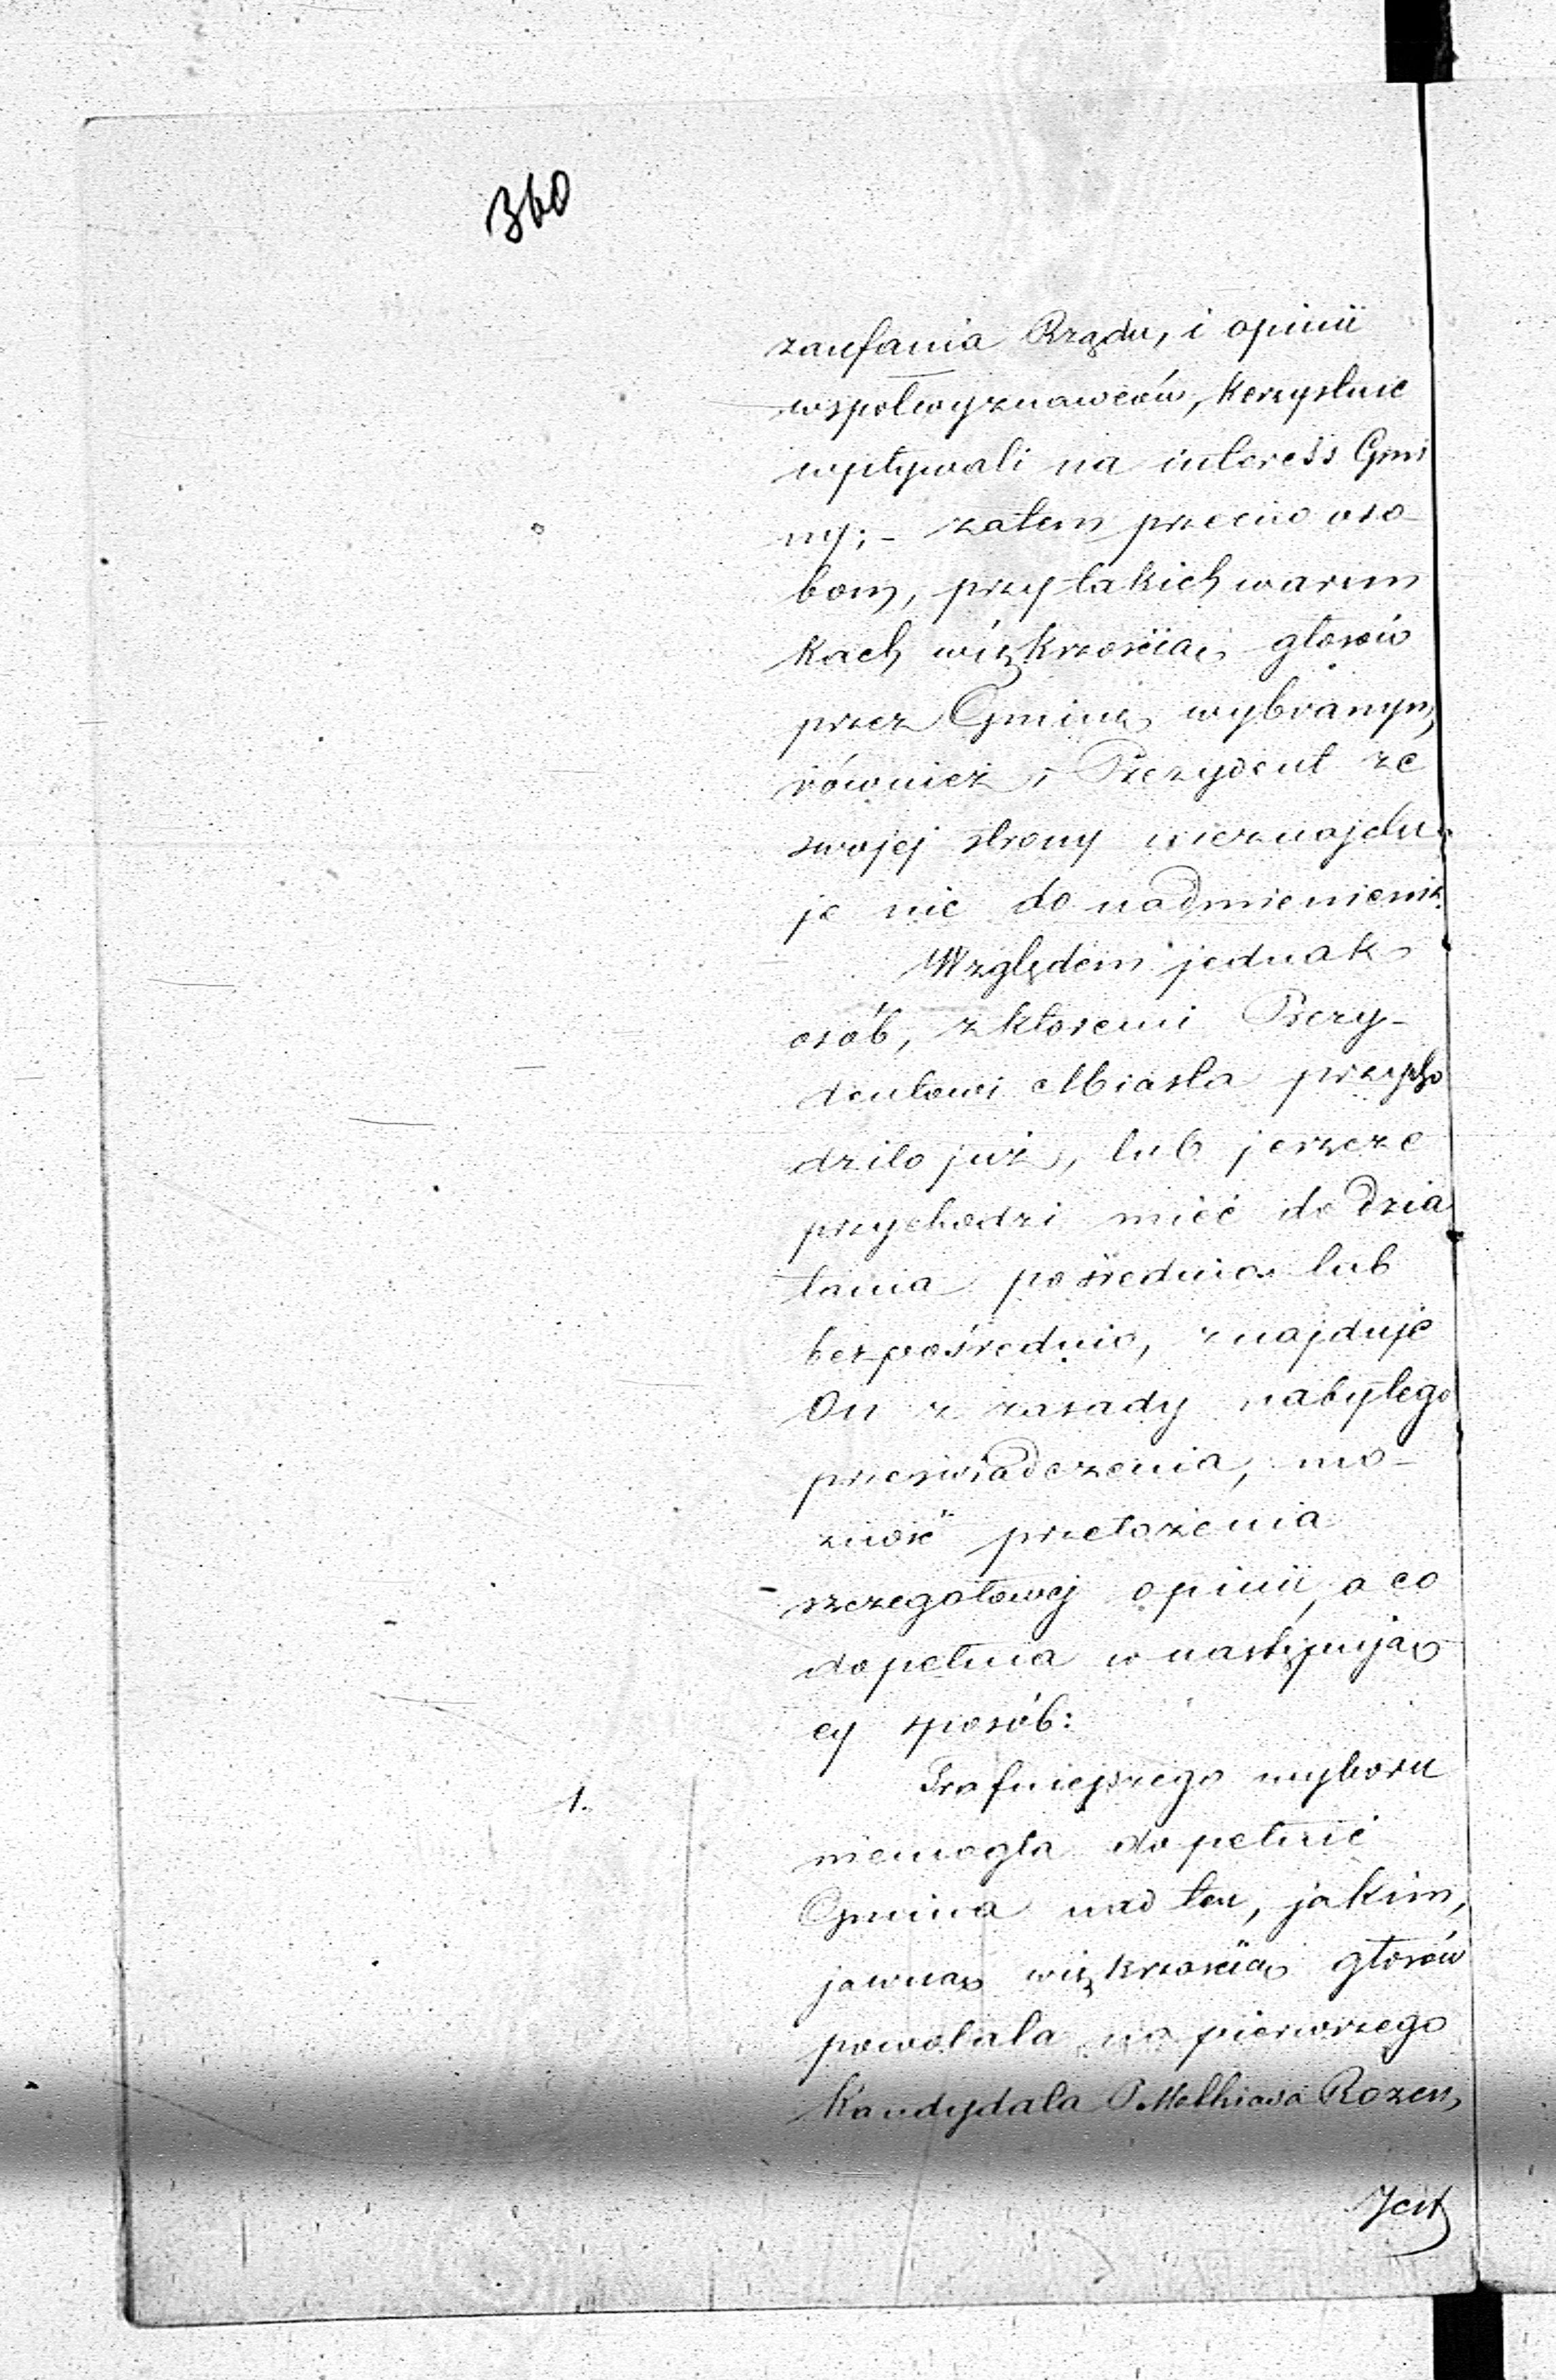 360
zaufania Rządu, i opinii
wspołwyznawców, korzystnie
wpływali na interess Gmi
ny; - zatem przeciw oso-
bom, przy takich warun
kach większością głosów
przez Gminę wybranym,
również i Prezydent ze
swojej strony nieznajdu
je nic do nadmienienia.
Względem jednak
osób, z ktoremi Prezy-
dentowi Miasta przycho
dziło już, lub jeszcze
przychodzi mieć do dzia
łania pośrednio lub
bezpośrednio, znajduje
On z zasady nabytego
przeświadczenia, mo-
żność przełożenia
szczegołowej opinii, a co
dopełnia w następują
cy sposób:
1.
Trafniejszego wyboru
niemogła dopełnić
Gmina nad ten, jakim,
jawną większością głosów
powołała na pierwszego
Kandydata P. Mathiasa Rozen,
Jest